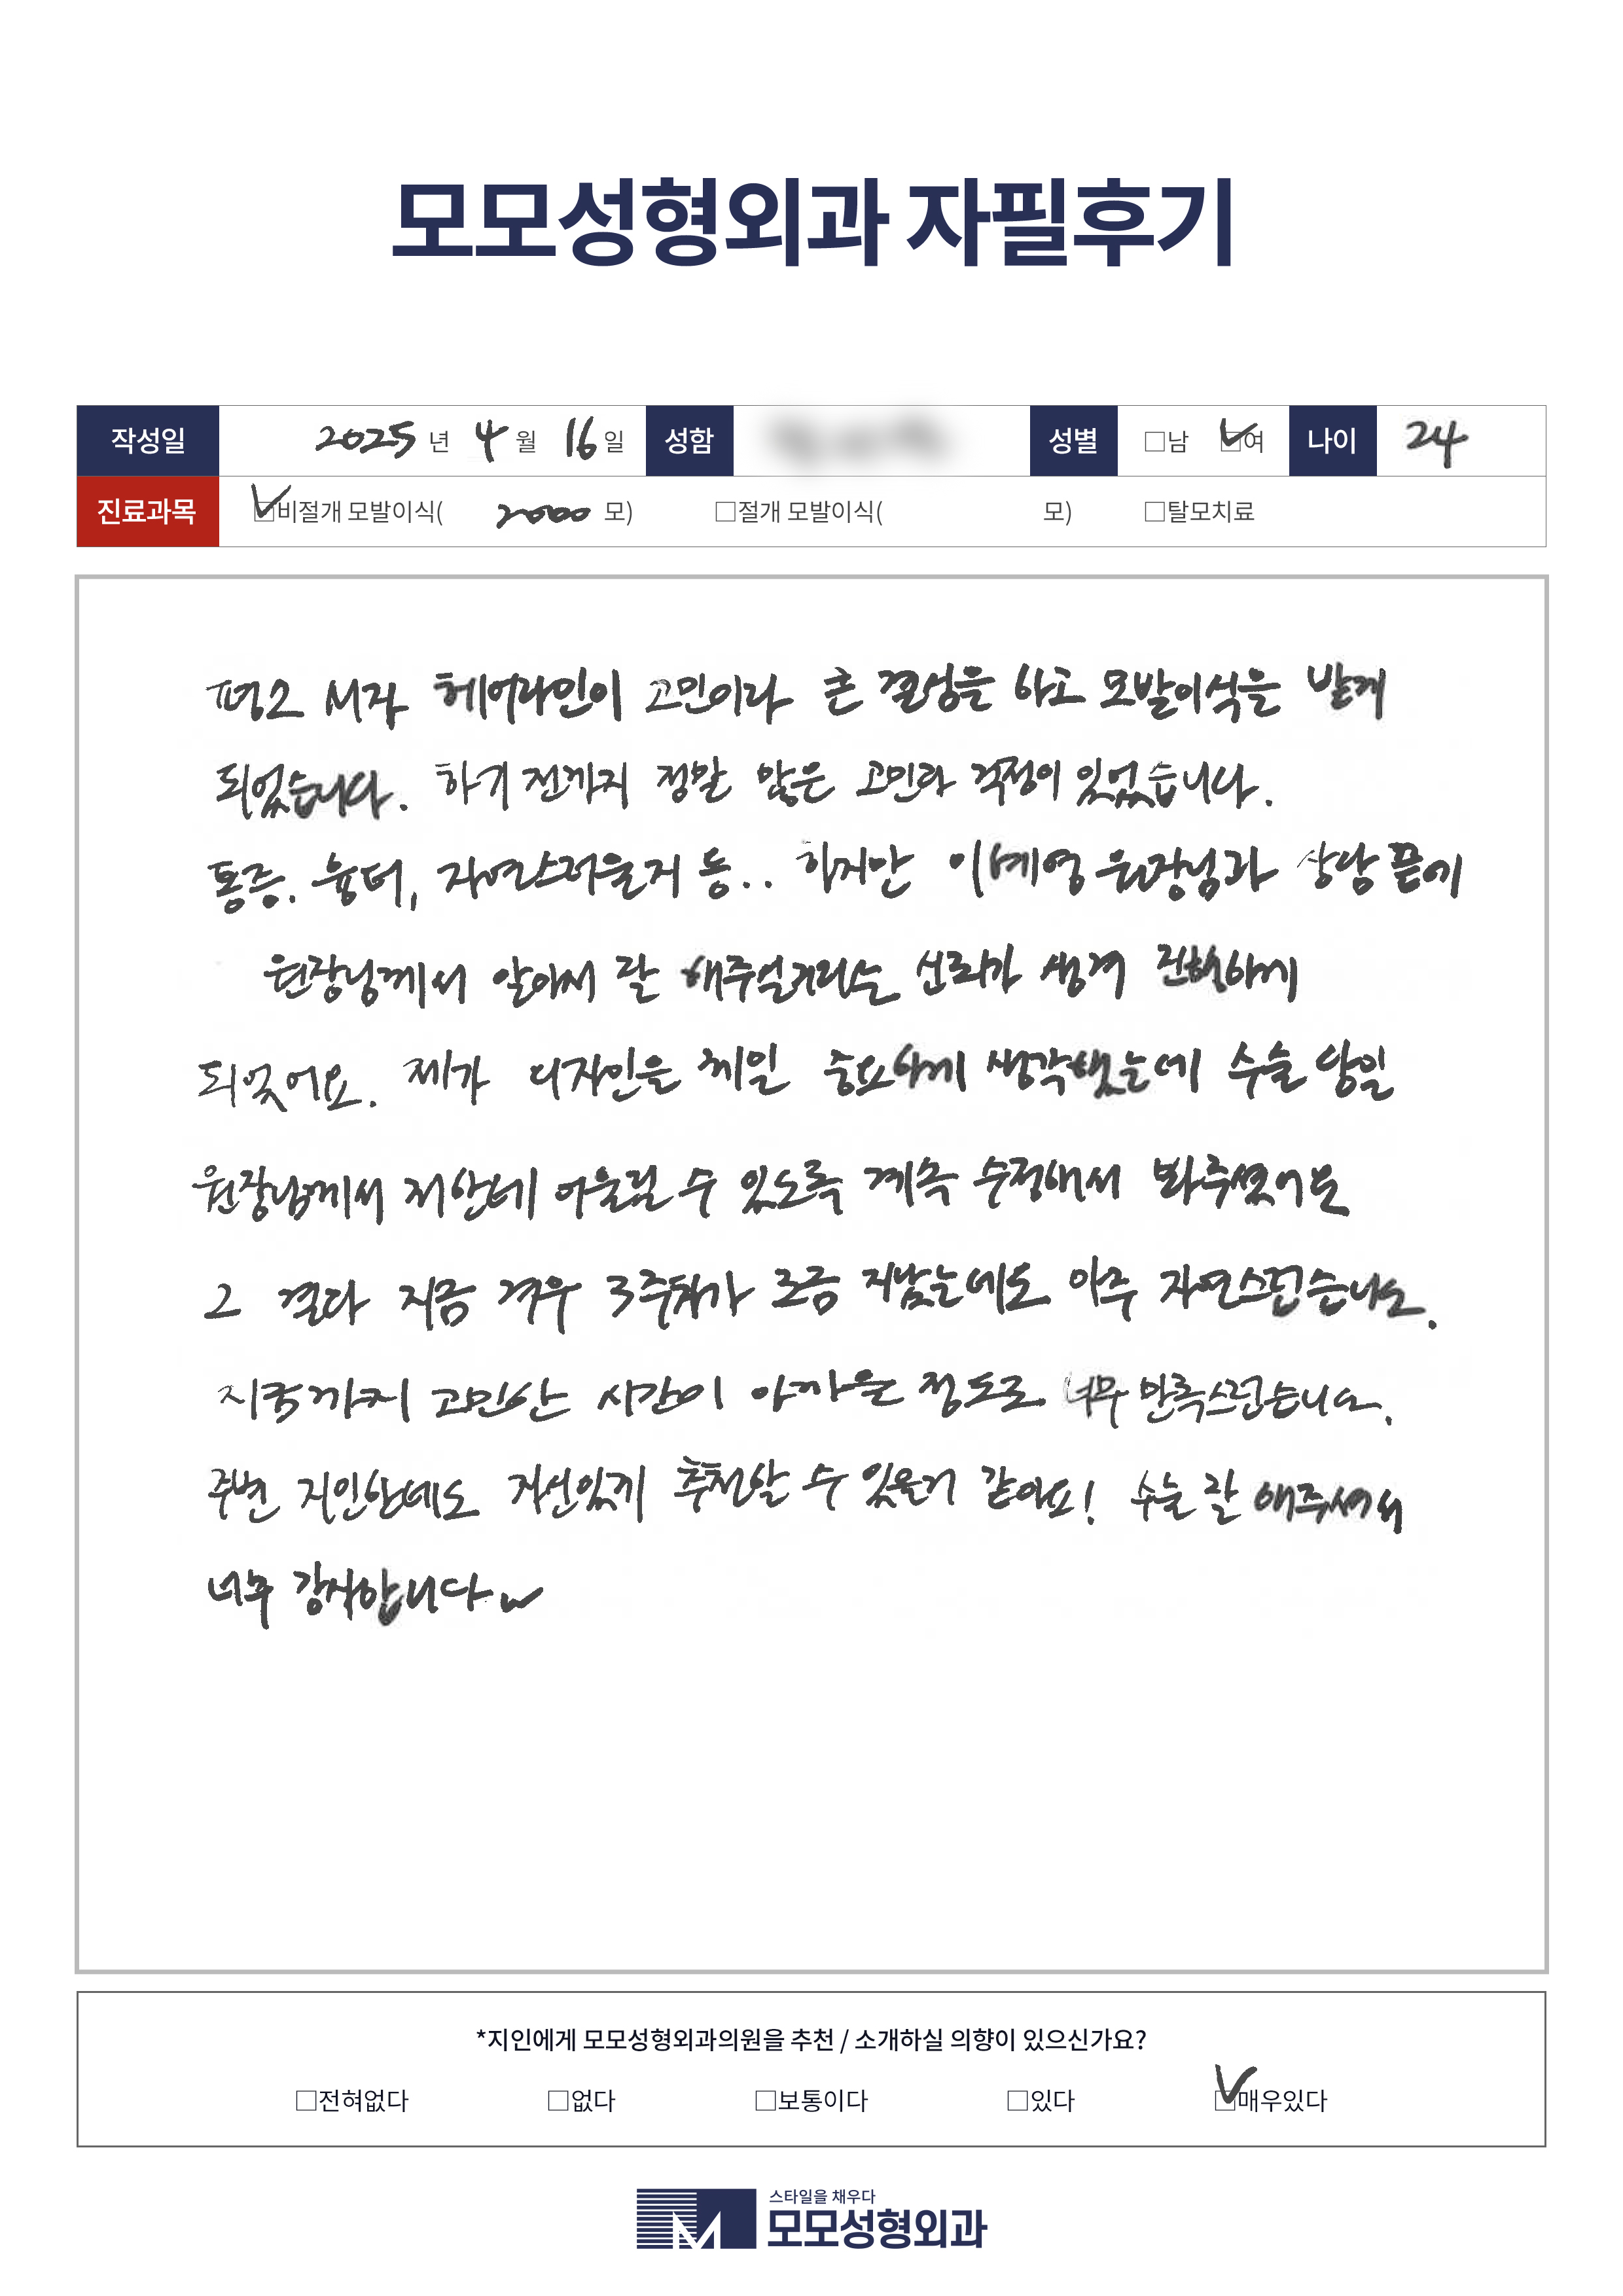 모모성형외과 자필후기
작성일 2025 년 4 월 16 일 성함 성별 □남 ☑여 나이 24
진료과목 ☑비절개 모발이식( 2000 모) □절개 모발이식( 모) □탈모치료
평소 M자 헤어라인이 고민이라 큰 결심을 하고 모발이식을 받게
되었습니다. 하기 전까지 정말 많은 고민과 걱정이 있었습니다.
통증. 흉터, 자연스러울지 등.. 하지만 이혜영 원장님과 상담 끝에
원장님께서 알아서 잘 해주실거라는 신뢰가 생겨 진행하게
되었어요. 제가 디자인을 제일 중요하게 생각했는데 수술 당일
원장님께서 저한테 어울릴 수 있도록 계속 수정해서 봐주셨어요
그 결과 지금 겨우 3주차가 조금 지났는데도 아주 자연스럽습니다.
지금까지 고민한 시간이 아까울 정도로 너무 만족스럽습니다.
주변 지인한테도 자신있게 추천할 수 있을거 같아요! 수술 잘 해주셔서
너무 감사합니다
*지인에게 모모성형외과의원을 추천 / 소개하실 의향이 있으신가요?
□전혀없다 □없다 □보통이다 □있다 ☑매우있다
스타일을 채우다
모모성형외과